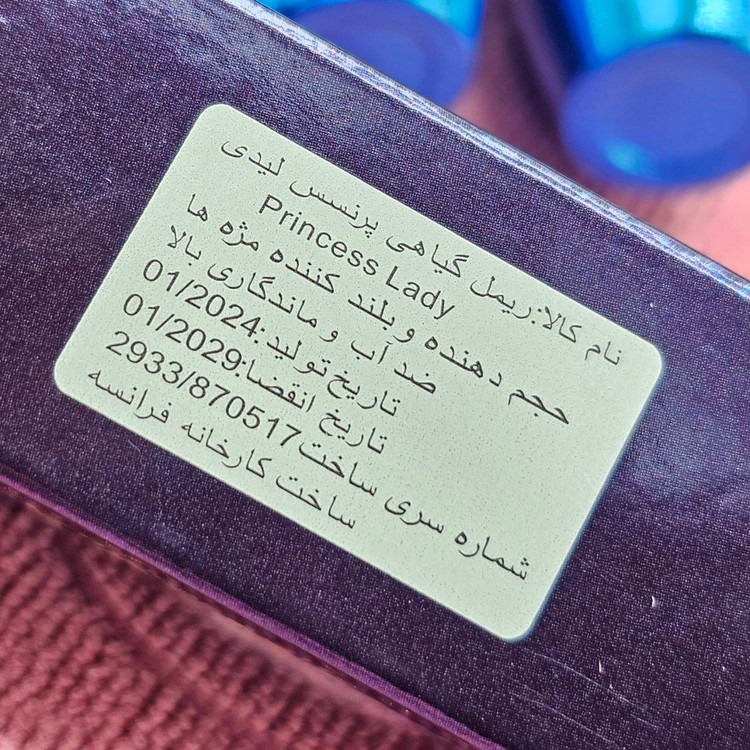 نام کالا:ریمل گیاهی پرنسس لیدی
Princess Lady
حجم دهنده و بلند کننده مژه ها
ضد آب و ماندگاری بالا
تاریخ تولید:01/2024
تاریخ انقضا:01/2029
شماره سری ساخت2933/870517
ساخت کارخانه فرانسه